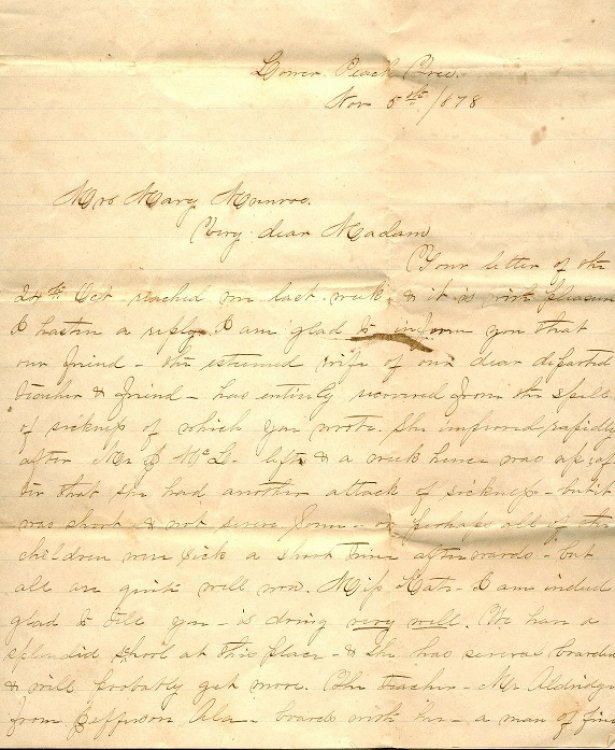 Lower Peach Tree.
Nov 5th /878
Mrs Mary Munroe.
Very dear Madam
Your letter of the
24th Oct reached me last week, & it is with pleasure
I hasten a reply. I am glad to inform you that
our friend – the esteemed wife of our dear departed
teacher & friend – has entirely recovered from the spell
of sickness of which you wrote. She improved rapidly
after Mr J McL. left & a week hence was up; af
ter that she had another attack of sickness – but it
was short & not severe. Some – or perhaps all of the
children were sick a short time afterwards – but
all are quite well now. Miss Kate – I am indeed
glad to tell you – is doing very well. We have a
splendid school at this place – & she has several boarders
& will probably get more. The teacher – Mr Aldridge
from Jefferson Ala – boards with her – a man of fine